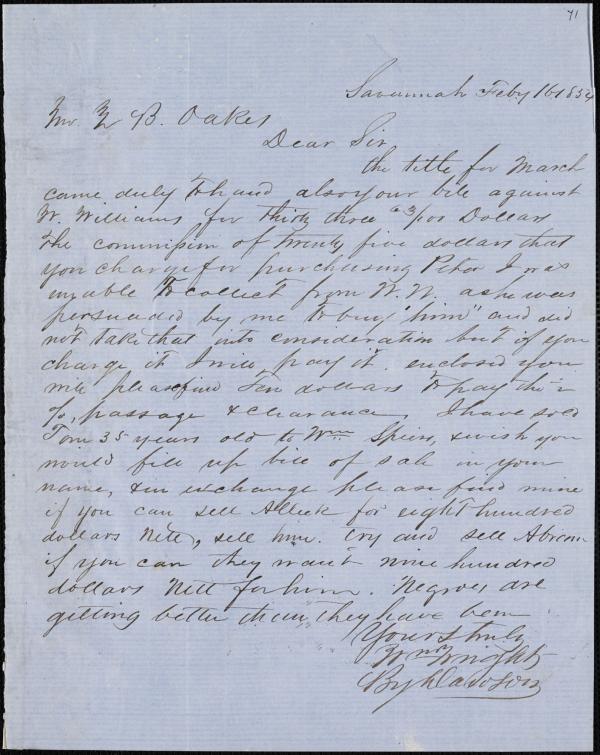 71
Savannah Feby 16 1854
Mr Z B. Oakes
Dear Sir
the title for March
came duly to hand also your bill against
W. Williams for thirty three 63/100 Dollars
The commission of twenty five dollars that
you charge for purchasing Peter I was
unable to collect from W. W. as he was
persuaded by me to buy "him" and did
not take that into consideration but if you
charge it I will pay it. enclosed you
will please find Ten dollars to pay the
passage & clearance, I have sold
Tom 35 years old to Wm Spiers, & wish you
would fill up bill of sale in your
name, & in exchange please find mine
if you can sell Alleck for eight hundred
dollars Nett, sell him. try and sell Abram
if you can they want nine hundred
dollars Nett for him. Negroes are
getting better than they have been
Yours truly
Wm Wright
By Dawson